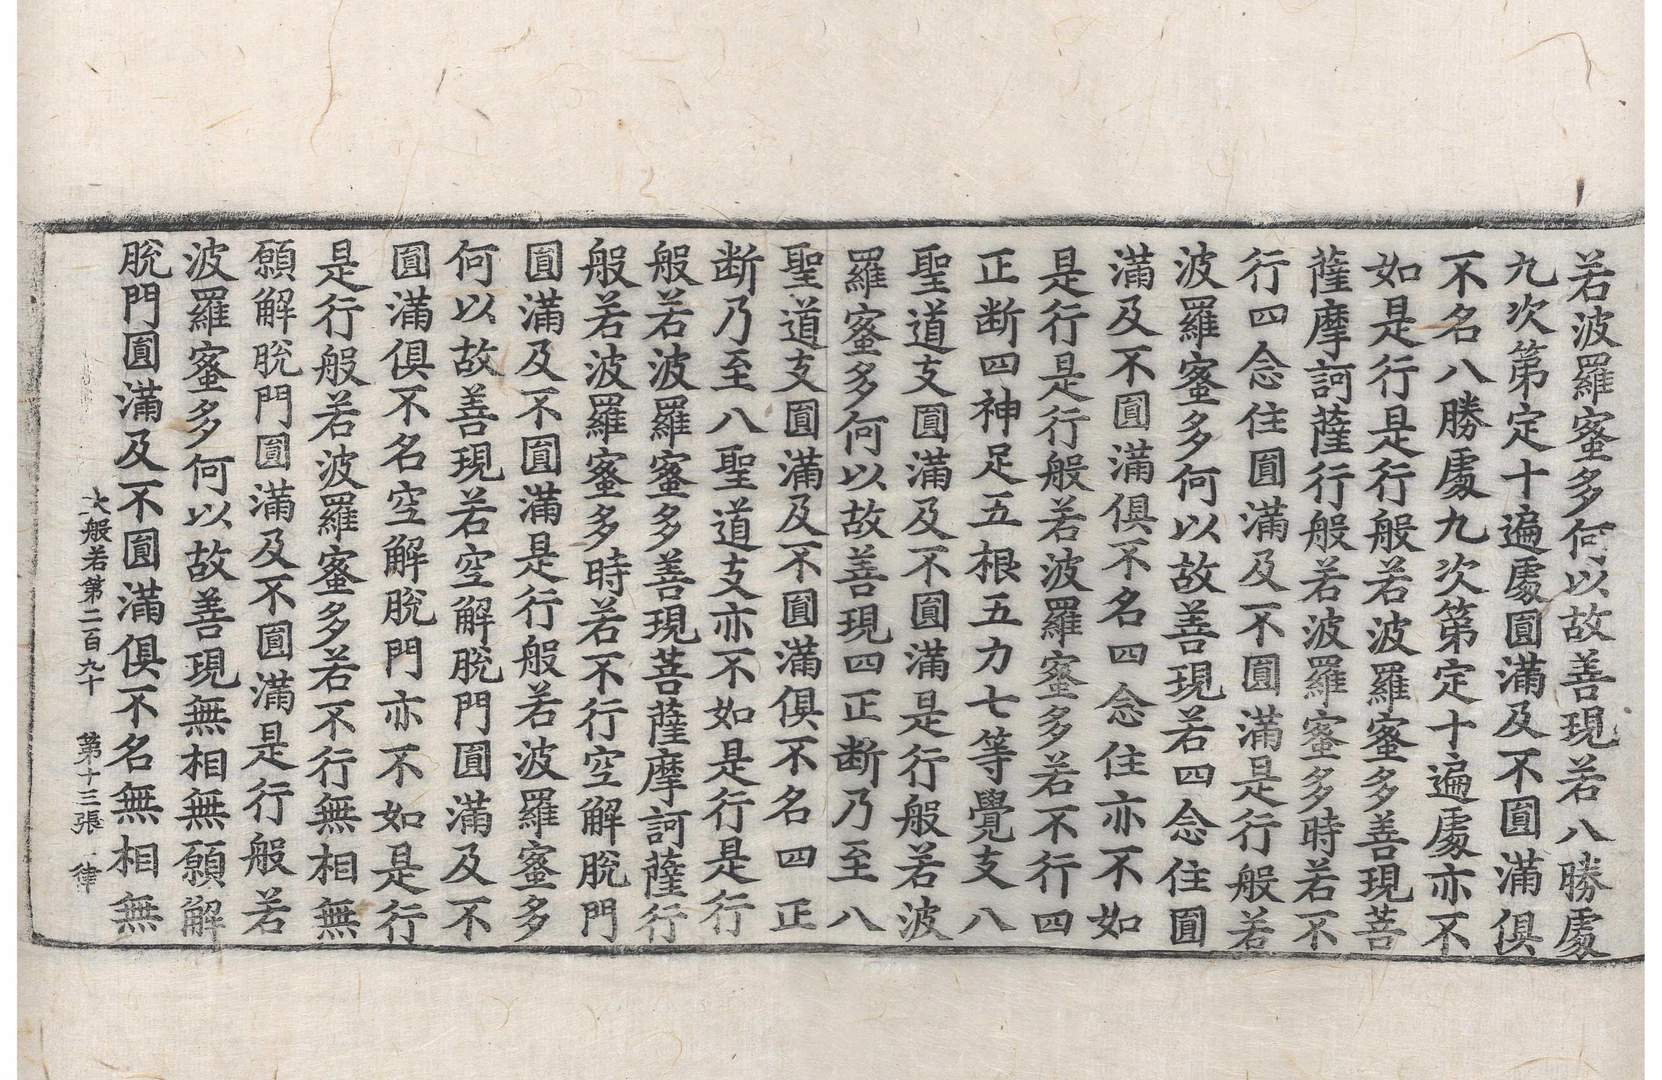 若波羅蜜多何以故善現若八勝處
九次第定十遍處圓滿及不圓滿俱
不名八勝處九次第定十遍處亦不
如是行是行般若波羅蜜多善現菩
薩摩訶薩行般若波羅蜜多時若不
行四念住圓滿及不圓滿是行般若
波羅蜜多何以故善現若四念住圓
滿及不圓滿俱不名四念住亦不如
是行是行般若波羅蜜多若不行四
正斷四神足五根五力七等覺支八
聖道支圓滿及不圓滿是行般若波
羅蜜多何以故善現四正斷乃至八
聖道支圓滿及不圓滿俱不名四正
斷乃至八聖道支亦不如是行是行
般若波羅蜜多善現菩薩摩訶薩行
般若波羅蜜多時若不行空解脫門
圓滿及不圓滿是行般若波羅蜜多
何以故善現若空解脫門圓滿及不
圓滿俱不名空解脫門亦不如是行
是行般若波羅蜜多若不行無相無
願解脫門圓滿及不圓滿是行般若
波羅蜜多何以故善現無相無願解
脫門圓滿及不圓滿俱不名無相無
大般若第二百九十 第十三張 律